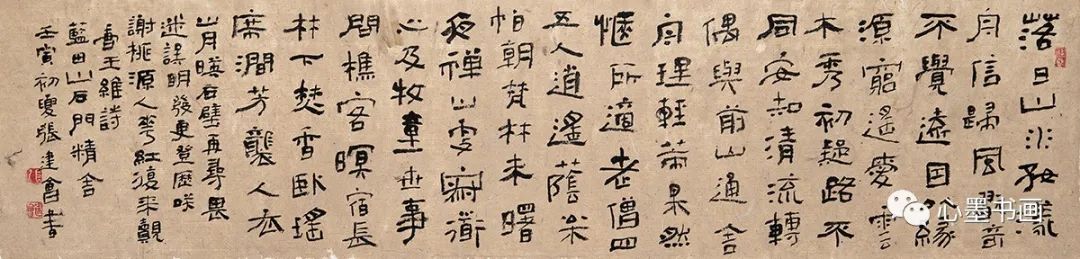 落日山水好漾
舟信歸風翫奇
不覺遠因以緣
源窮遙愛雲
木秀初疑路不
同安知清流轉
偶與前山通舍
舟理輕策果然
愜所適老僧四
五人逍遙蔭松
柏朝梵林未曙
夜禪山更寂道
心及牧童世事
問樵客暝宿長
林下焚香臥瑤
席澗芳襲人衣
山月暎石壁再尋畏
迷誤明發更登歷咲
謝桃源人花紅復来覿
書王維詩
藍田山石門精舍
壬寅初夏張建會書
心墨书画